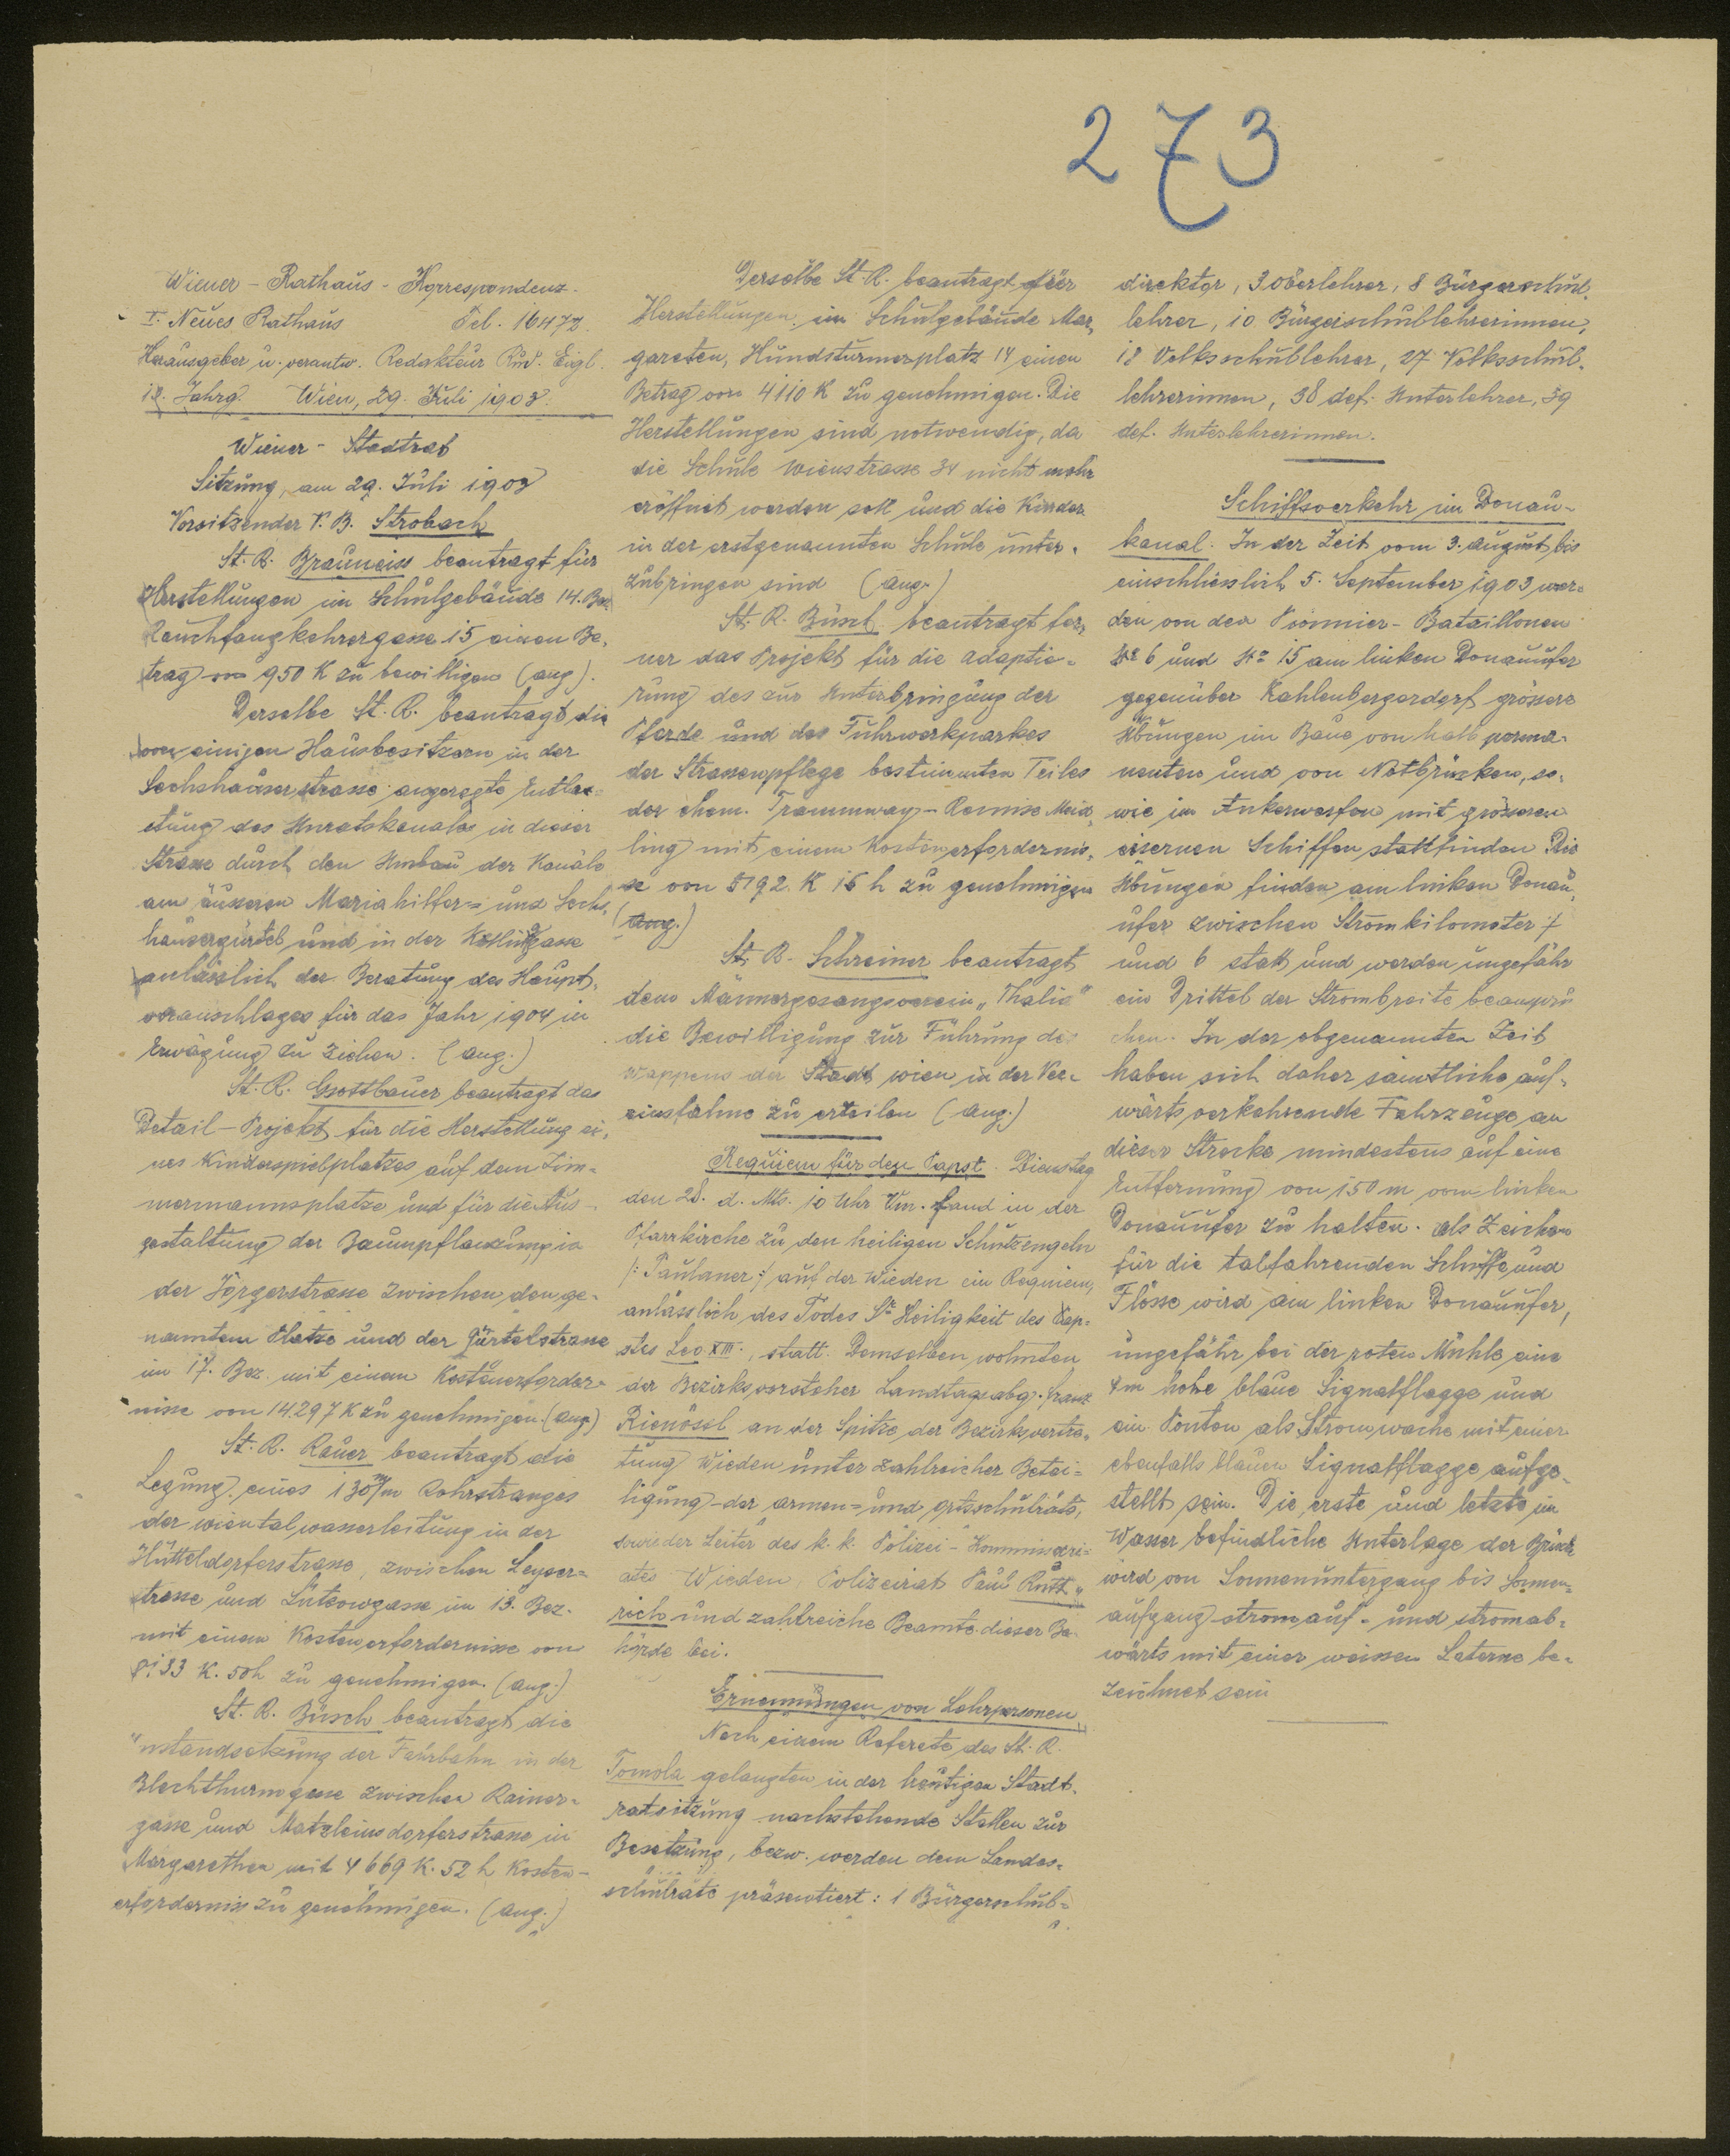 273
Wiener-Rathaus-Korrespondenz.
I. Neues Rathaus Tel. 16472.
Herausgeber u. verantw. Redakteur Rud. Eigl.
13. Jahrg. Wien, 29. Juli 1903.
Wiener-Stadtrat
Sitzung, am 29. Juli 1903
Vorsitzender V. B. Strobach
St. R. Brauneiss beantragt für
Herstellungen im Schulgebäude 14. Bez.
Rauchfangkehrergasse 15 einen Be-
trag von 950 K zu bewilligen (ang).
Derselbe St. R. beantragt die
von einigen Hausbesitzern in der
Sechshauserstrasse angeregte Entlas-
tung des Unratskanales in dieser
Strasse durch den Umbau der Kanäle
am äusseren Mariahilfer- und Sechs-
hausergürtel und in der gasse
anlässlich der Beratung des Haupt-
voranschlages für das Jahr 1904 in
Erwägung zu ziehen. (ang.)
St. R. Gsottbauer beantragt das
Detail-Projekt für die Herstellung ei-
nes Kinderspielplatzes auf dem Zim-
mermannsplatze und für die Aus-
gestaltung der Baumpflanzung in
der Jörgerstrasse zwischen dem ge-
nannten Platze und der Gürtelstrasse
im 17. Bez. mit einem Kostenerforder-
nisse von 14.297 K zu genehmigen. (ang)
St. R. Rauer beantragt die
Legung eines 130 m/m Rohrstranges
der Wientalwasserleitung in der
Hütteldorferstrasse, zwischen Leyser-
strasse und Lützowgasse im 13. Bez.
mit einem Kostenerfordernisse von
133 K. 50 h zu genehmigen. (ang.)
St. R. Büsch beantragt die
Instandsetzung der Fahrbahn in der
Blechthurmgasse zwischen Rainer-
gasse und Matzleinsdorferstrasse in
Margarethen mit 4669 K. 52 h Kosten-
erfordernis zu genehmigen. (ang.)
Derselbe St. R. beantragt für
Herstellungen im Schulgebäude Mar-
gareten, Hundsturmerplatz 14 einen
Betrag von 4110 K zu genehmigen. Die
Herstellungen sind notwendig, da
die Schule Wienstrasse 34 nicht mehr
eröffnet werden soll und die Kinder
in der erstgenannten Schule unter-
zubringen sind (ang.)
St. R. Büsch beantragt fer-
ner das Projekt für die Adaptie-
rung des zur Unterbringung der
Pferde und des Fuhrwerkparkes
der Strassenpflege bestimmten Teiles
der ehem. Trammway-Remise Meid-
ling mit einem Kostenerfordernis-
se von 5192 K 16 h zu genehmigen
(ang.)
St. R. Schreiner beantragt
dem Männergesangsverein „Thalia"
die Bewilligung zur Führung des
Wappens der Stadt Wien in der Ver-
einsfahne zu erteilen (ang.)
Requiem für den Papst. Dienstag
den 28. d. Mts. 10 Uhr Vm. fand in der
Pfarrkirche zu den heiligen Schutzengeln
/: Paulaner :/ auf der Wieden ein Requiem,
anlässlich des Todes Sr Heiligkeit des Pap-
stes Leo XIII., statt. Demselben wohnten
der Bezirksvorsteher Landtagsabg. Franz
Rienössl an der Spitze der Bezirksvertre-
tung Wieden unter zahlreicher Betei-
ligung der Armen- und Ortsschulräte,
sowie der Leiter des k. k. Polizei-Kommissari-
ates Wieden, Polizeirat Paul
und zahlreiche Beamte dieser Be-
hörde bei.
Ernennungen von Lehrpersonen.
Nach einem Referate des St. R.
Tomola gelangten in der heutigen Stadt-
ratssitzung nachstehende Stellen zur
Besetzung, bezw. werden dem Landes-
schulrate präsentiert: 1 Bürgerschul-
direktor, 3 Oberlehrer, 8 Bürgerschul-
lehrer, 10 Bürgerschullehrerinnen,
18 Volksschullehrer, 27 Volksschul-
lehrerinnen, 38 def. Unterlehrer, 39
def. Unterlehrerinnen.
Schiffsverkehr im Donau-
kanal. In der Zeit vom 3. August bis
einschliesslich 5. September 1903 wer-
den von den Pionnier-Bataillonen
No 6 und No 15 am linken Donauufer
gegenüber Kahlenbergerdorf grössere
Übungen im Baue von halb perma-
nenten und von Notbrücken, so-
wie im Ankerwerfen mit grösseren
eisernen Schiffen stattfinden. Die
Übungen finden am linken Donau-
ufer zwischen Stromkilometer 7
und 6 statt und werden ungefähr
ein Drittel der Strombreite beanspru
chen. In der obgenannten Zeit
haben sich daher sämtliche auf-
wärtsverkehrende Fahrzeuge an
dieser Strecke mindestens auf eine
Entfernung von 150 m vom linken
Donauufer zu halten. Als Zeichen
für die talfahrenden Schiffe und
Flösse wird am linken Donauufer,
ungefähr bei der roten Mühle eine
4m hohe blaue Signalflagge und
ein Ponton als Stromwache mit einer
ebenfalls blauen Signalflagge aufge-
stellt sein. Die erste und letzte im
Wasser befindliche Unterlage der Brücke
wird von Sonnenuntergang bis Sonnen-
aufgang stromauf- und stromab-
wärts mit einer weissen Laterne be-
zeichnet sein